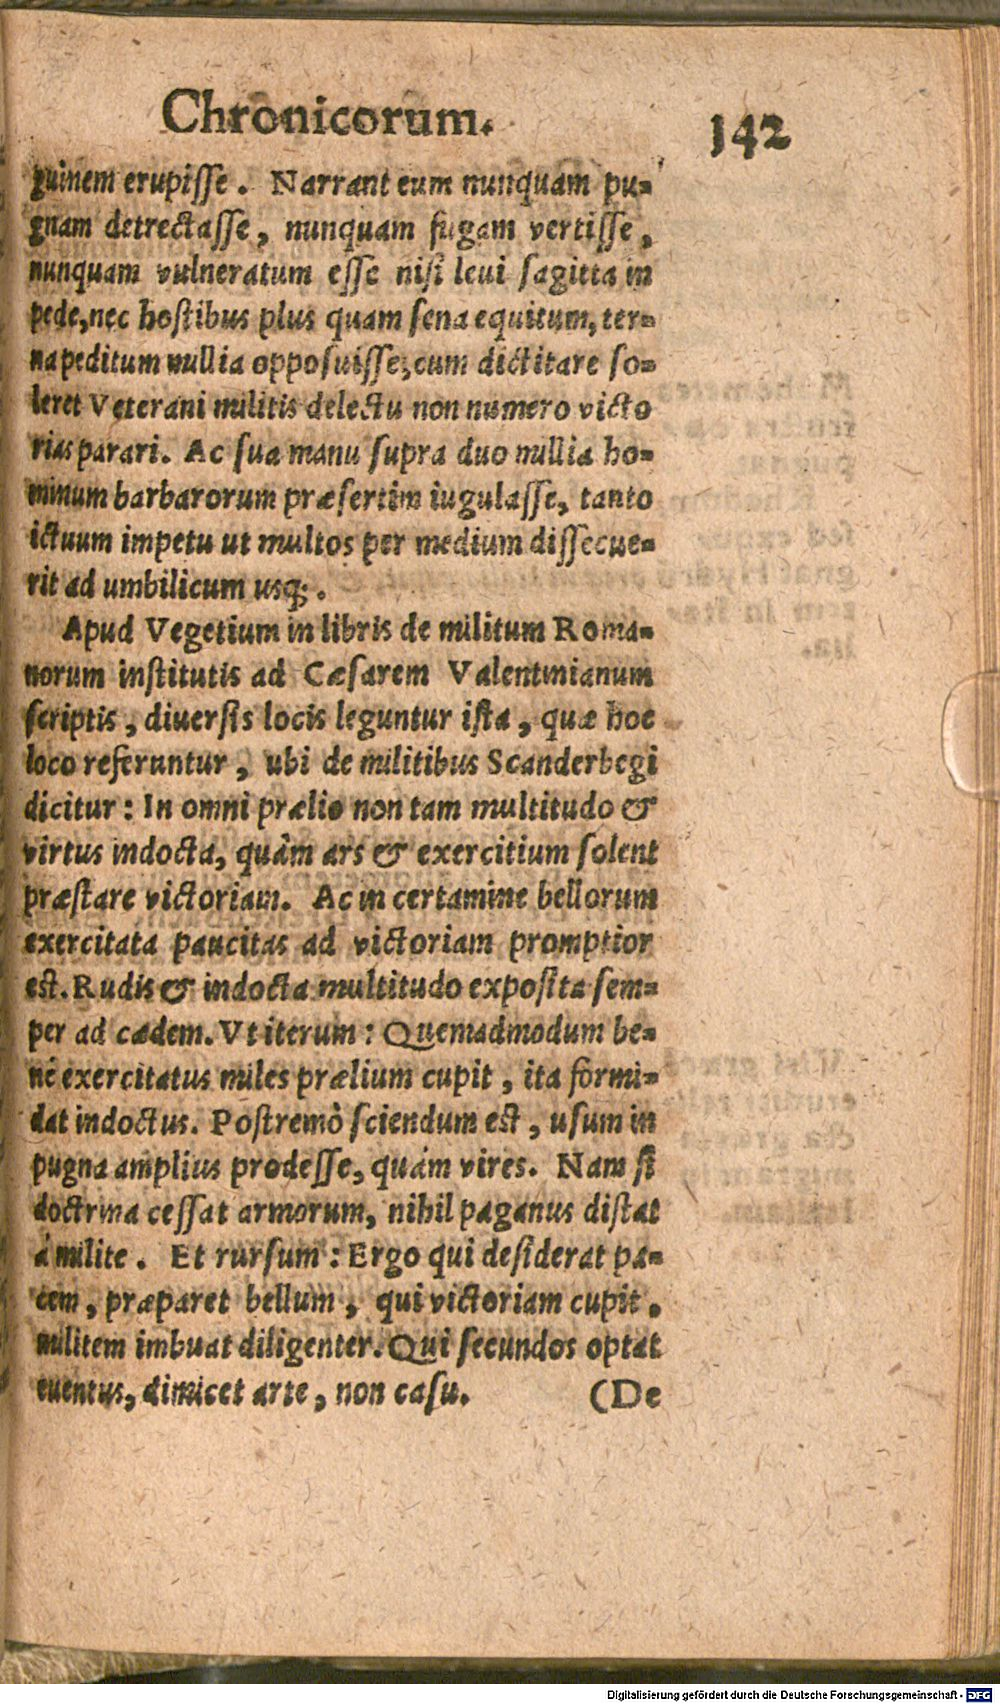 Chronicorum. 142
guinem erupisse. Narrant eum nunquam pu-
gnam detrectasse, nunquam fugam vertisse,
nunquam vulneratum esse nisi leui sagitta in
pede, nec hostibus plus quam sena equitum, ter-
na peditum millia opposuisse; cum dictitare so-
leret Veterani militis delectu non numero victo
rias parari. Ac sua manu supra duo millia ho-
minum barbarorum præsertim iugulasse, tanto
ictuum impetu ut multos per medium dissecue-
rit ad umbilicum usq;.
Apud Vegetium in libris de militum Roma-
norum institutis ad Cæsarem Valentinianum
scriptis, diuersis locis leguntur ista, quæ hoc
loco referuntur, ubi de militibus Scanderbegi
dicitur: In omni prælio non tam multitudo &
virtus indocta, quàm ars & exercitium solent
præstare victoriam. Ac in certamine bellorum
exercitata paucitas ad victoriam promptior
est. Rudis & indocta multitudo exposita sem-
per ad cædem. Vt iterum: Quemadmodum be-
nè exercitatus miles prælium cupit, ita formi-
dat indoctus. Postremò sciendum est, usum in
pugna amplius prodesse, quàm vires. Nam si
doctrina cessat armorum, nihil paganus distat
à milite. Et rursum: Ergo qui desiderat pa-
cem, præparet bellum, qui victoriam cupit,
militem imbuat diligenter. Qui secundos optat
euentus, dimicet arte, non casu. (De
Digitalisierung gefördert durch die Deutsche Forschungsgemeinschaft - DFG